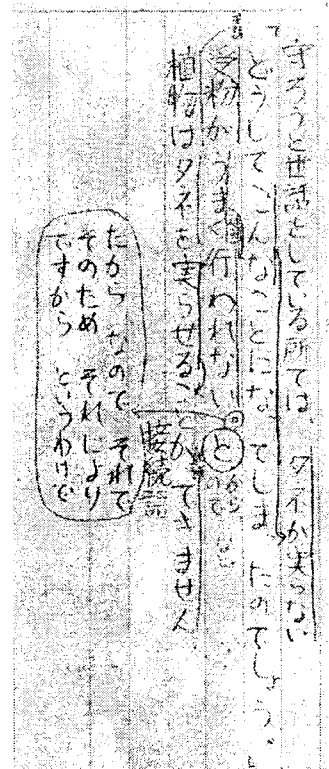 守ろうと世話をしている所では、タネが実らない
どうしてこんなことになってしまったのでしょう。
受粉がうまく行われないと
植物はタネを実らせることができません
接続語
だから なので それで
そのため それにより
ですから というわけで